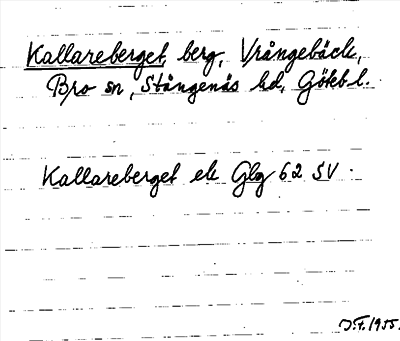 Kallareberget, berg, Vrångebäck,
Bro sn, Stångenäs hd, Götebl.
Kallareberget ek Glg 62 SV.
J.F. 1955.